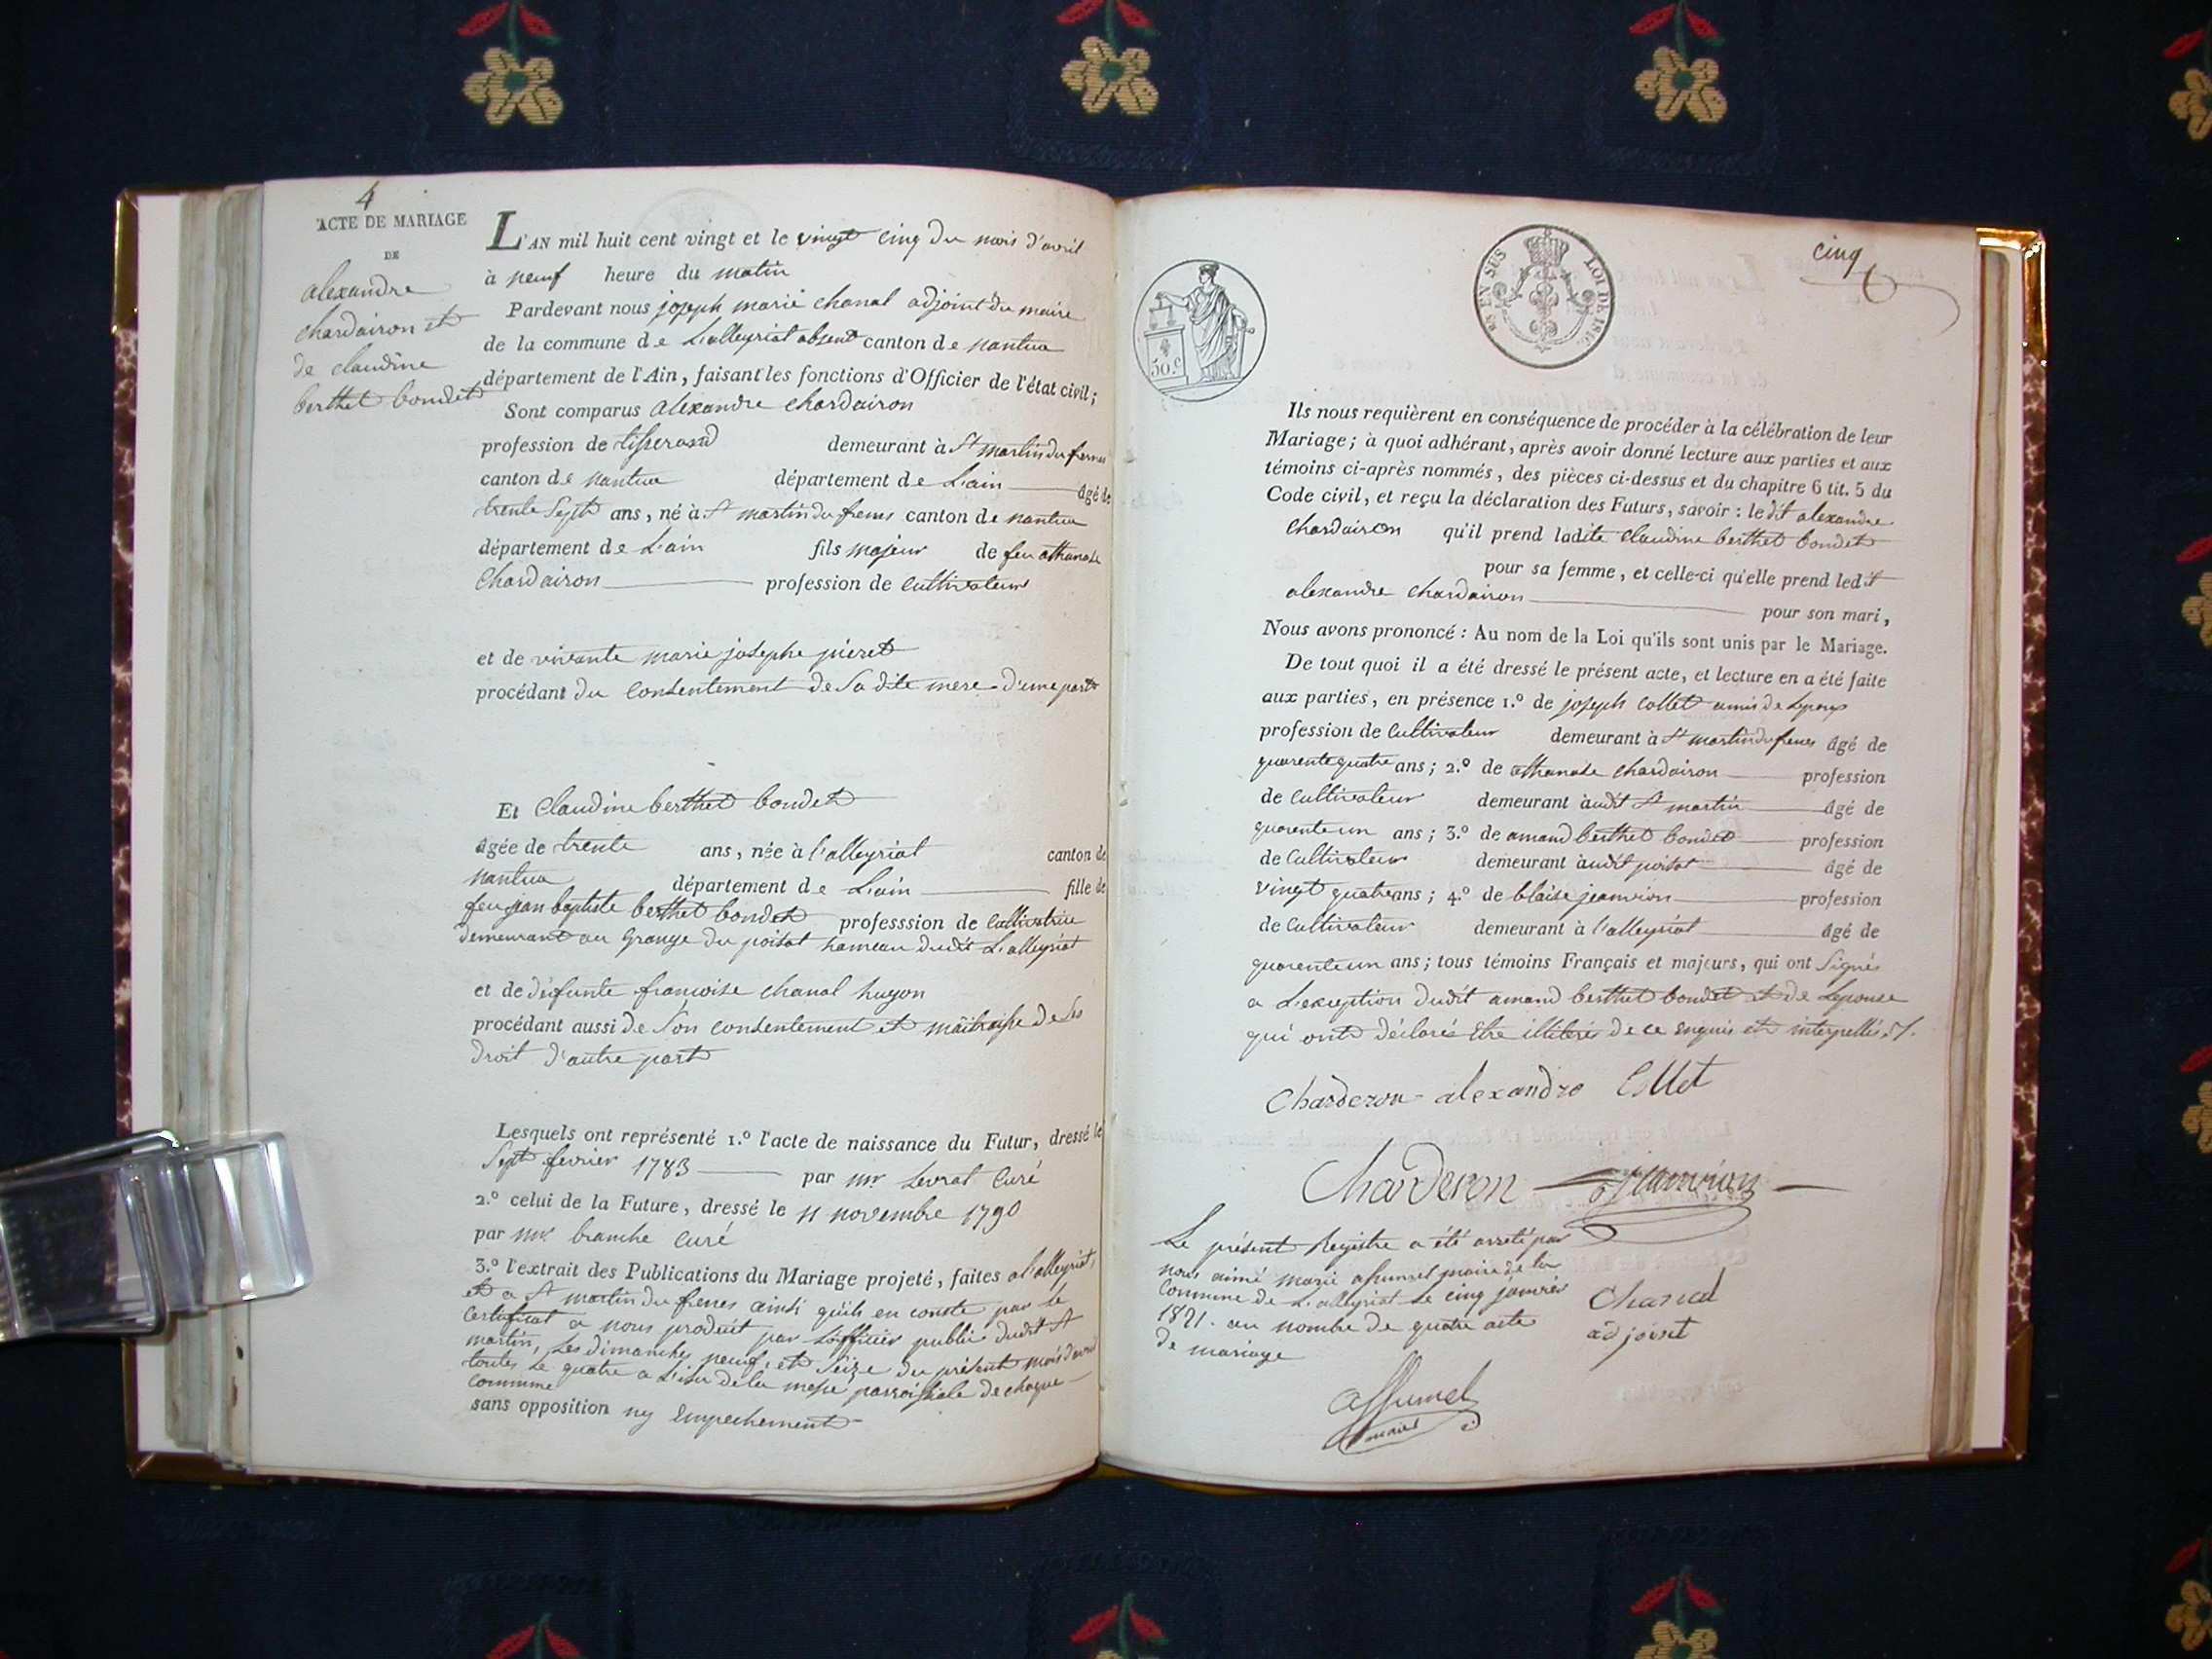 4
ACTE DE MARIAGE
DE
alexandre
chardairon et
de claudine
berthet bondet
L'AN mil huit cent vingt et le vingt cinq du mois d'avril
à neuf heure du matin
Pardevant nous joseph marie chanal adjoint du maire
de la commune de L'alleyriat absent canton de nantua
département de l'Ain, faisant les fonctions d'Officier de l'état civil;
Sont comparus alexandre chardairon
profession de tisserand demeurant à St martin du frenes
canton de nantua département de L'ain âgé de
trente Sept ans, né à St martin du frenes canton de nantua
département de L'ain fils majeur de feu athanase
Chardairon profession de cultivateur
et de vivante marie josephe pieret
procédant du consentement de Sa dite mere d'une part
Et Claudine berthet bondet
âgée de trente ans, née à l'alleyriat canton de
nantua département de L'ain fille de
feu jean baptiste berthet bondet professsion de Cultivatrice
demeurant au Grange du poisat hameau dudit L'alleyriat
et de défunte francoise chanal hugon
procédant aussi de Son consentement et maitraisse de Ses
droit d'autre part
Lesquels ont représenté 1.º l'acte de naissance du Futur, dressé le
Sept fevrier 1783 par mr Levrat Curé
2.º celui de la Future, dressé le 11 novembre 1790
par mr branche Curé
3.º l'extrait des Publications du Mariage projeté, faites a l'alleyriat,
et a St martin du frenes ainsi qu'ils en conste par le
Certificat a nous produit par L'officier public dudit St
martin, Les dimanches neuf, et Seize du présent mois d'avril
toutes Le quatre a L'isu de la messe parroissiale de chaque
commune
sans opposition ny Empechement
cinq
EN SUS LOI DE
50.c
Ils nous requièrent en conséquence de procéder à la célébration de leur
Mariage; à quoi adhérant, après avoir donné lecture aux parties et aux
témoins ci-après nommés, des pièces ci-dessus et du chapitre 6 tit. 5 du
Code civil, et reçu la déclaration des Futurs, savoir: le dit alexandre
Chardairon qu'il prend ladite Claudine berthet bondet
pour sa femme, et celle-ci qu'elle prend ledit
alexandre chardairon pour son mari,
Nous avons prononcé: Au nom de la Loi qu'ils sont unis par le Mariage.
De tout quoi il a été dressé le présent acte, et lecture en a été faite
aux parties, en présence 1.º de joseph Collet amis de Lepoux
profession de Cultivateur demeurant à St martin du frenes âgé de
quarente quatre ans; 2.º de athanase chardairon profession
de Cultivateur demeurant àudit St martin âgé de
quarente un ans; 3.º de amand berthet bondet profession
de Cultivateur demeurant àudit poisat âgé de
vingt quatre ans; 4.º de blaise jeanvion profession
de Cultivateur demeurant à l'alleyriat âgé de
quarente un ans; tous témoins Français et majeurs, qui ont Signés
a L'exception dudit amand berthet bondet et de Lepouse
qui ont déclarés Etre illiterés de ce enquis et interpellés
Charderon alexandre Collet
Charderon jeanvion
Le présent Registre a été arreté par
nous aimé marie assumel maire de la
Commune de L'alleyriat le cinq janvier
1821. au nombre de quatre acte
de mariage
Chanal
adjoint
assumel
maire